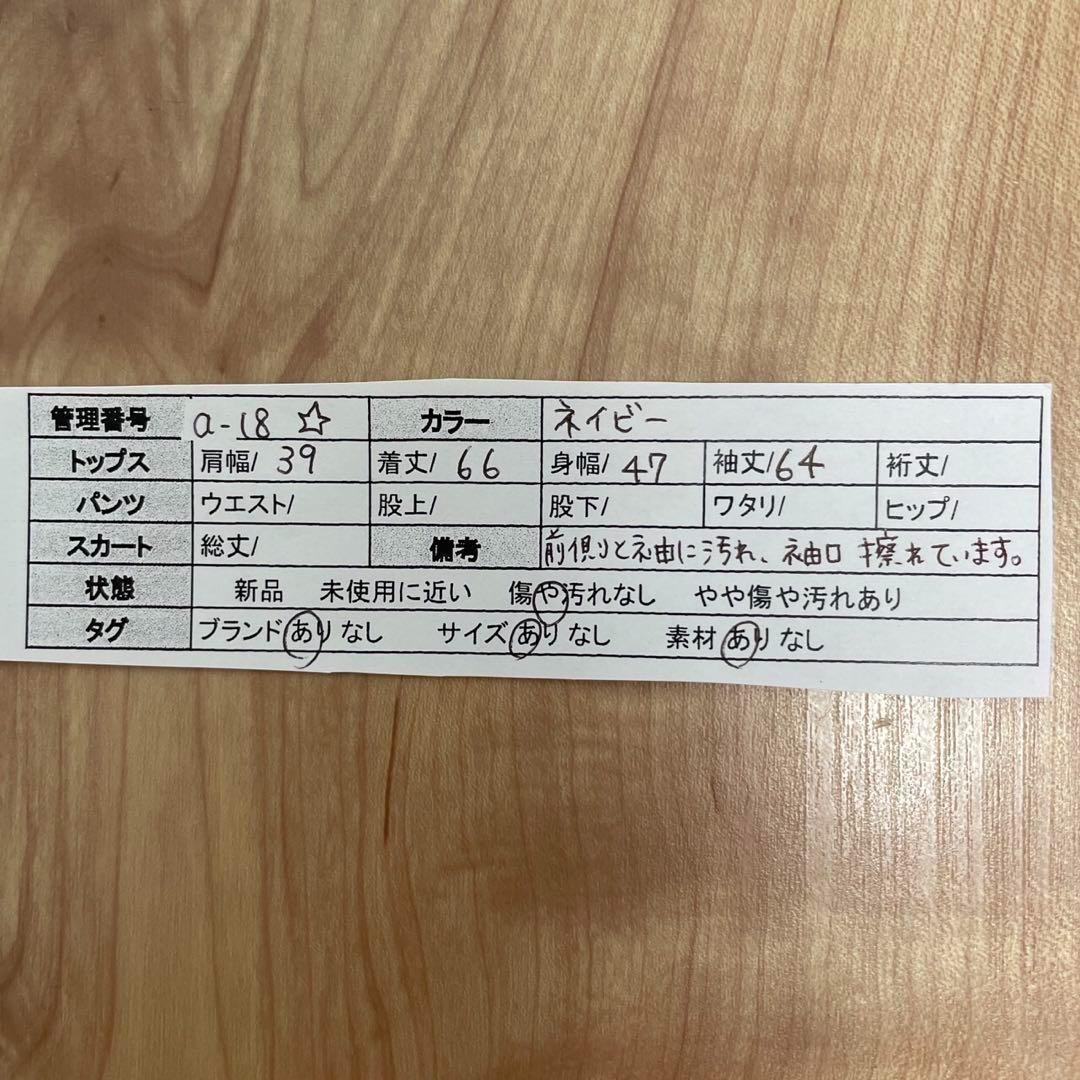 管理番号 a-18 ☆ カラー ネイビー
トップス 肩幅/ 39 着丈/ 66 身幅/ 47 袖丈/64 裄丈/
パンツ ウエスト/ 股上/ 股下/ ワタリ/ ヒップ/
スカート 総丈/ 備考 前側りと袖に汚れ、袖口擦れています。
状態 新品 未使用に近い 傷や汚れなし やや傷や汚れあり
タグ ブランドありなし サイズありなし 素材ありなし